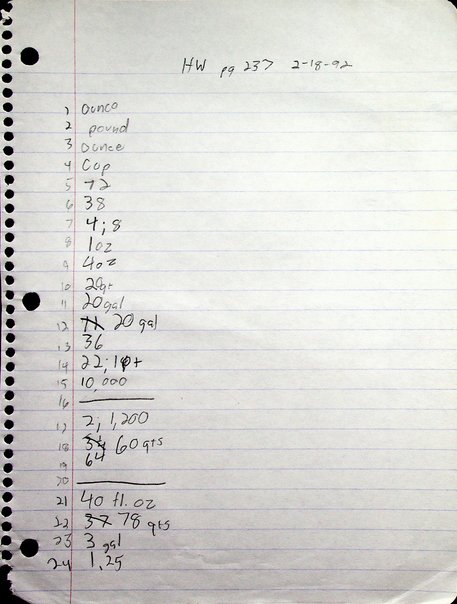 HW pg 237 2-18-92
1 Ounce
2 pound
3 Ounce
4 Cup
5 72
6 38
7 4; 8
8 1oz
9 4oz
10 20qt
11 20gal
12 20 gal
13 36
14 22; 1pt
15 10,000
16
17 2; 1,200
18 60 qts
19 64
20
21 40 fl. oz
22 37 78 qts
23 3 gal
24 1.25